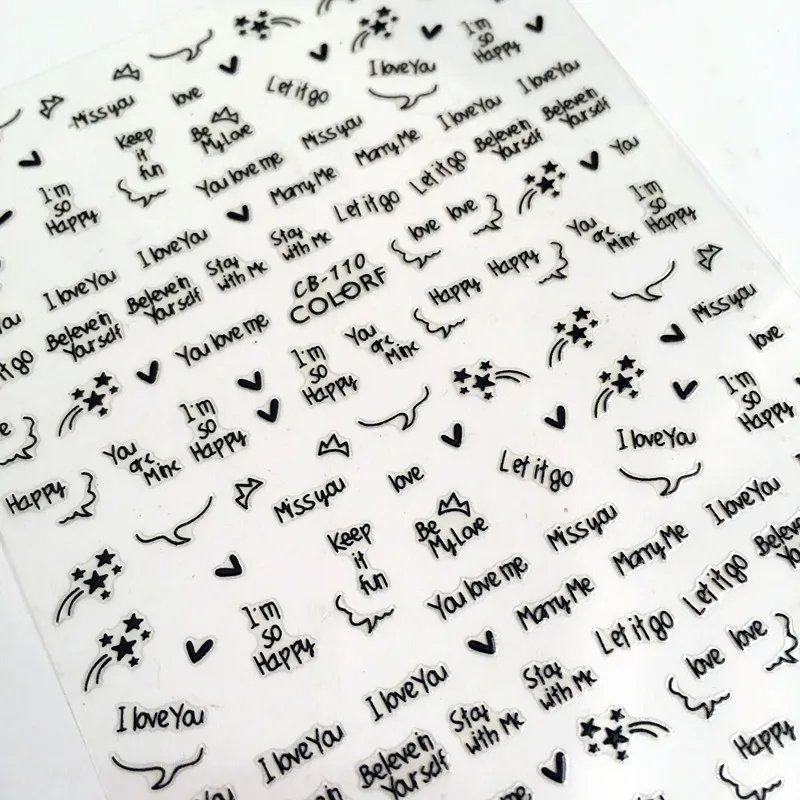 I'm
so
Happy
I love You
Let it go
love
Miss you
I love You
I love You
Marry Me
Miss you
Be
My Love
Keep
it
fun
Beleve in
Yourself
Beleve in
Yourself
You
Let it go
Let it go
Marry Me
You love me
I'm
so
Happy
I'm
so
Happy
You
are
Mine
love
love
Stay
with Me
Stay
with Me
I love You
I love You
Happy
Happy
CB-110
COLORF
Beleve in
Yourself
Beleve in
Yourself
You love me
Miss you
love
You
are
Mine
I'm
so
Happy
I'm
so
Happy
You
are
Mine
Happy
I'm
so
Happy
I love You
Let it go
love
Miss you
I love You
Marry Me
Miss you
Be
My Love
Keep
it
fun
Let it go
Let it go
Marry Me
You love me
I'm
so
Happy
love
love
Stay
with Me
Stay
with Me
I love You
I love You
I love You
Happy
Beleve in
Yourself